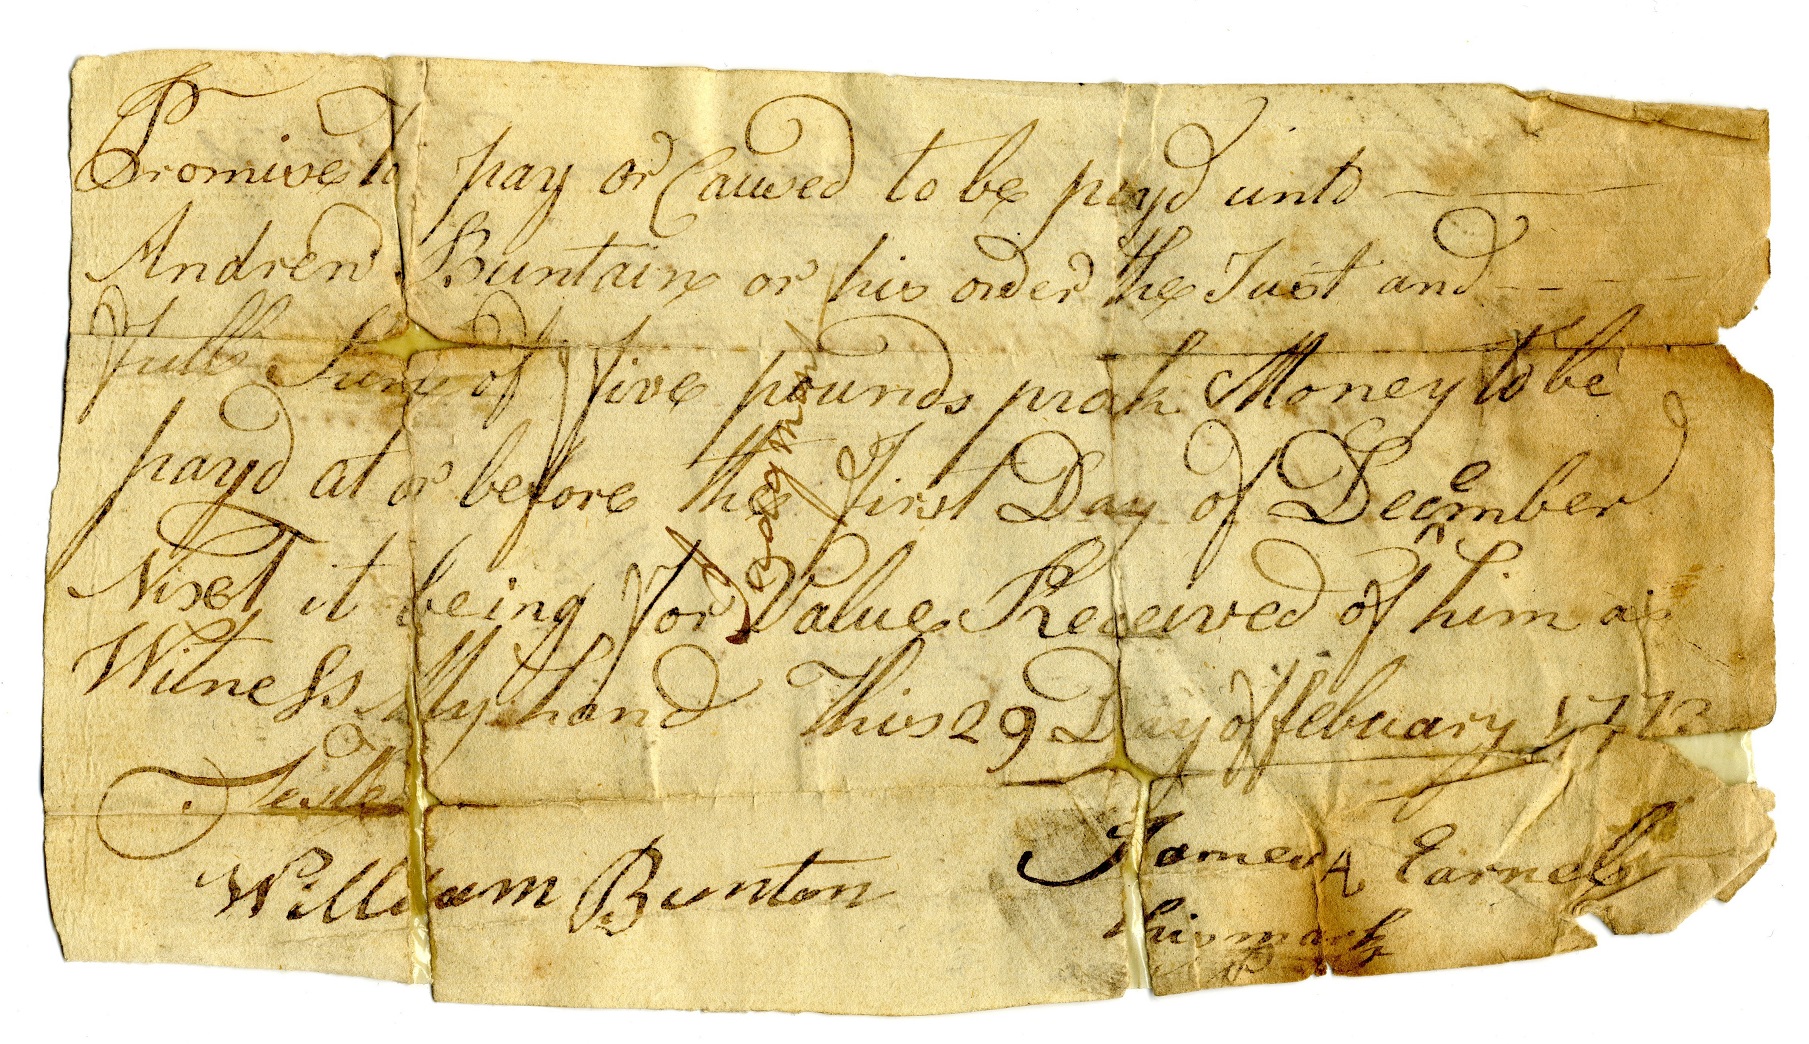 Promise to pay or Caused to be payd unto
Andrew Buntain or his order the Just and
full Sum of five pounds prock Money to be
payd at or before the first Day of December
Nixet it being for Value Received of him as
Witness My hand This 29 Day of febuary 1773
Teste
William Bunton
James A Earnely
his mark
Judgment